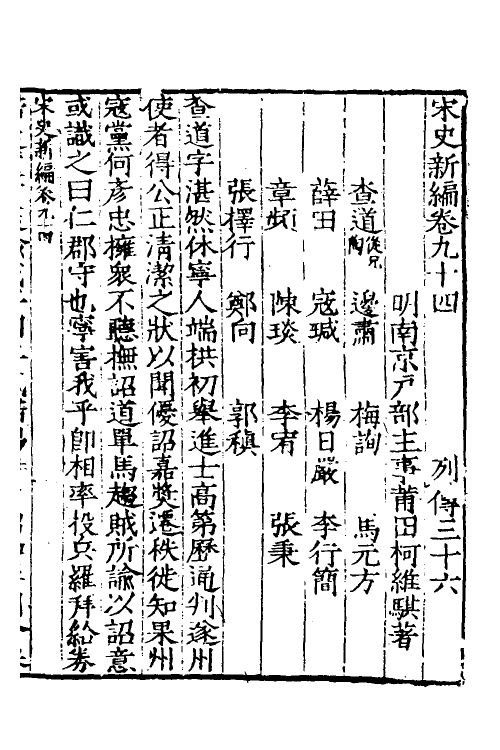 宋史新編卷九十四　列傳三十六
明南京戶部主事莆田柯維騏著
查道從兄陶　邊肅　梅詢　馬元方
薛田　寇瑊　楊日嚴　李行簡
章頻　陳琰　李宥　張秉
張擇行　鄭向　郭稹
查道字湛然休寧人端拱初舉進士高第歷通判遂州
使者得公正清潔之狀以聞優詔嘉獎遷秩徙知果州
寇黨何彥忠擁衆不聽撫詔道單馬趨賊所諭以詔意
或識之曰仁郡守也寧害我乎卽相率投兵羅拜給券
宋史新編卷九十四